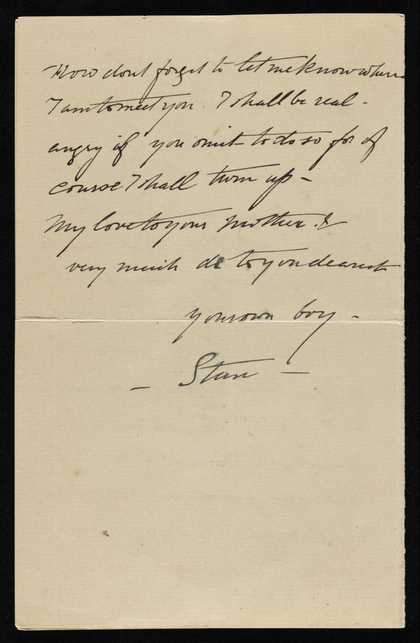 Now dont forget to let me know where
I am to meet you. I shall be real -
angry if you omit to do so for of
course I shall turn up -
My love to your Mother &
very much do to you dearest
your own boy -
- Stan -